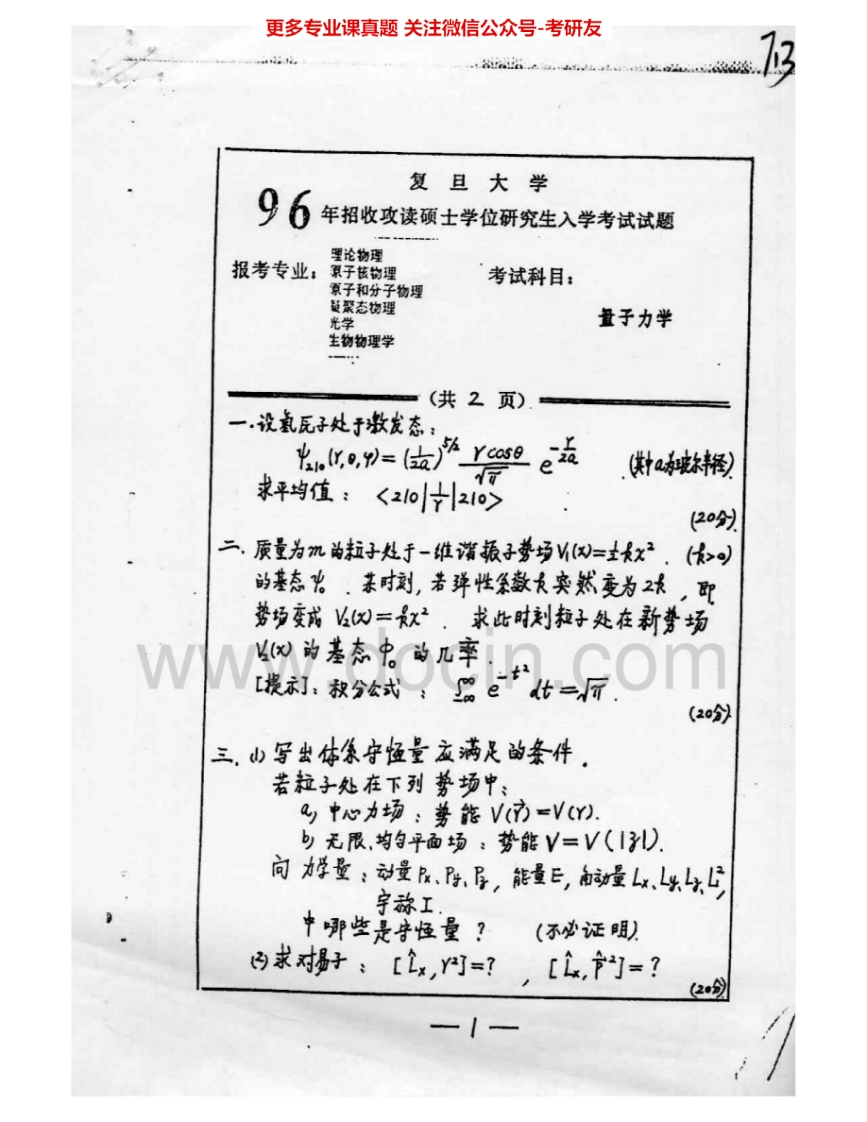 更多专业课真题 关注微信公众号-考研友
713
复 旦 大 学
96 年招收攻读硕士学位研究生入学考试试题
报考专业：
理论物理
原子核物理
原子和分子物理
凝聚态物理
光学
生物物理学
考试科目：
量子力学
(共 2 页)
一.设氢原子处于激发态：
ψ₂₁₀(r,θ,φ)=(1/2a)^{5/2} (r cosθ/√π) e^{-r/2a} (其中a为玻尔半径)
求平均值： <210|1/r|210>
(20分)
二. 质量为m的粒子处于一维谐振子势场V₁(x)=½kx². (k>0)
的基态ψ₀. 某时刻,若弹性系数k突然变为2k,即
势场变成 V₂(x)=kx². 求此时刻粒子处在新势场
V₂(x)的基态φ₀的几率.
[提示]：积分公式： ∫_{-∞}^{∞} e^{-t²} dt=√π.
(20分)
三. (1) 写出体系守恒量应满足的条件.
若粒子处在下列势场中：
a) 中心力场：势能 V(r⃗)=V(r).
b) 无限,均匀平面场：势能V=V(|z|).
问 力学量：动量Px、Py、Pz, 能量E, 角动量Lx、Ly、Lz、L²,
宇称I.
中哪些是守恒量? (不必证明).
(2) 求对易子： [L̂x, r²]=? , [L̂x, p̂²]=?
(20分)
—1—
www.docin.com